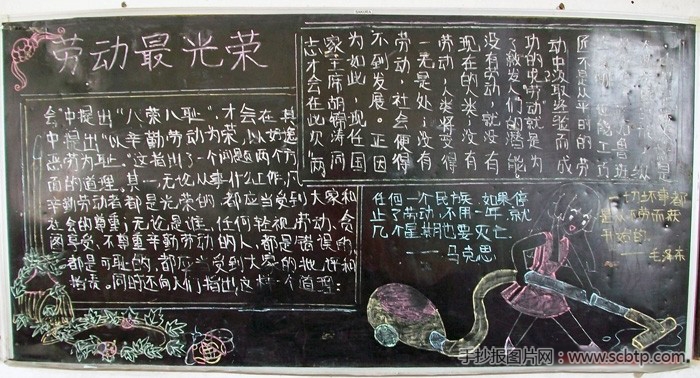 劳动最光荣
是
鲁班
能工巧
匠不是从平时的劳
动中汲取经验而成
功的史劳动就是为
了激发人们的潜能
没有劳动,就没有
现在的人类;没有
劳动,人类将变得
一无是处;没有
劳动,社会便得
不到发展。正因
为如此,现任国
家主席胡锦涛同
志才会在此次“两
会”中提出“八荣八耻”,才会在其
中提出“以辛勤劳动为荣,以好逸
恶劳为耻。”这指出了一个问题两个方
面的道理。其一,无论从事什么工作,凡
辛勤劳动者都是光荣的,都应当受到大家和
社会的尊重;无论是谁,任何轻视劳动、贪
图享受、不尊重辛勤劳动的人,都是错误的
,都是可耻的,都应当受到大家的批评和
谴责。同时还向人们指出这样一个道理:
任何一个民族,如果停
止了劳动,不用一年,就
几个星期也要灭亡
——马克思
一切坏事都
是从不劳而获
开始的
——毛泽东
手抄报图片网:www.scbtp.com